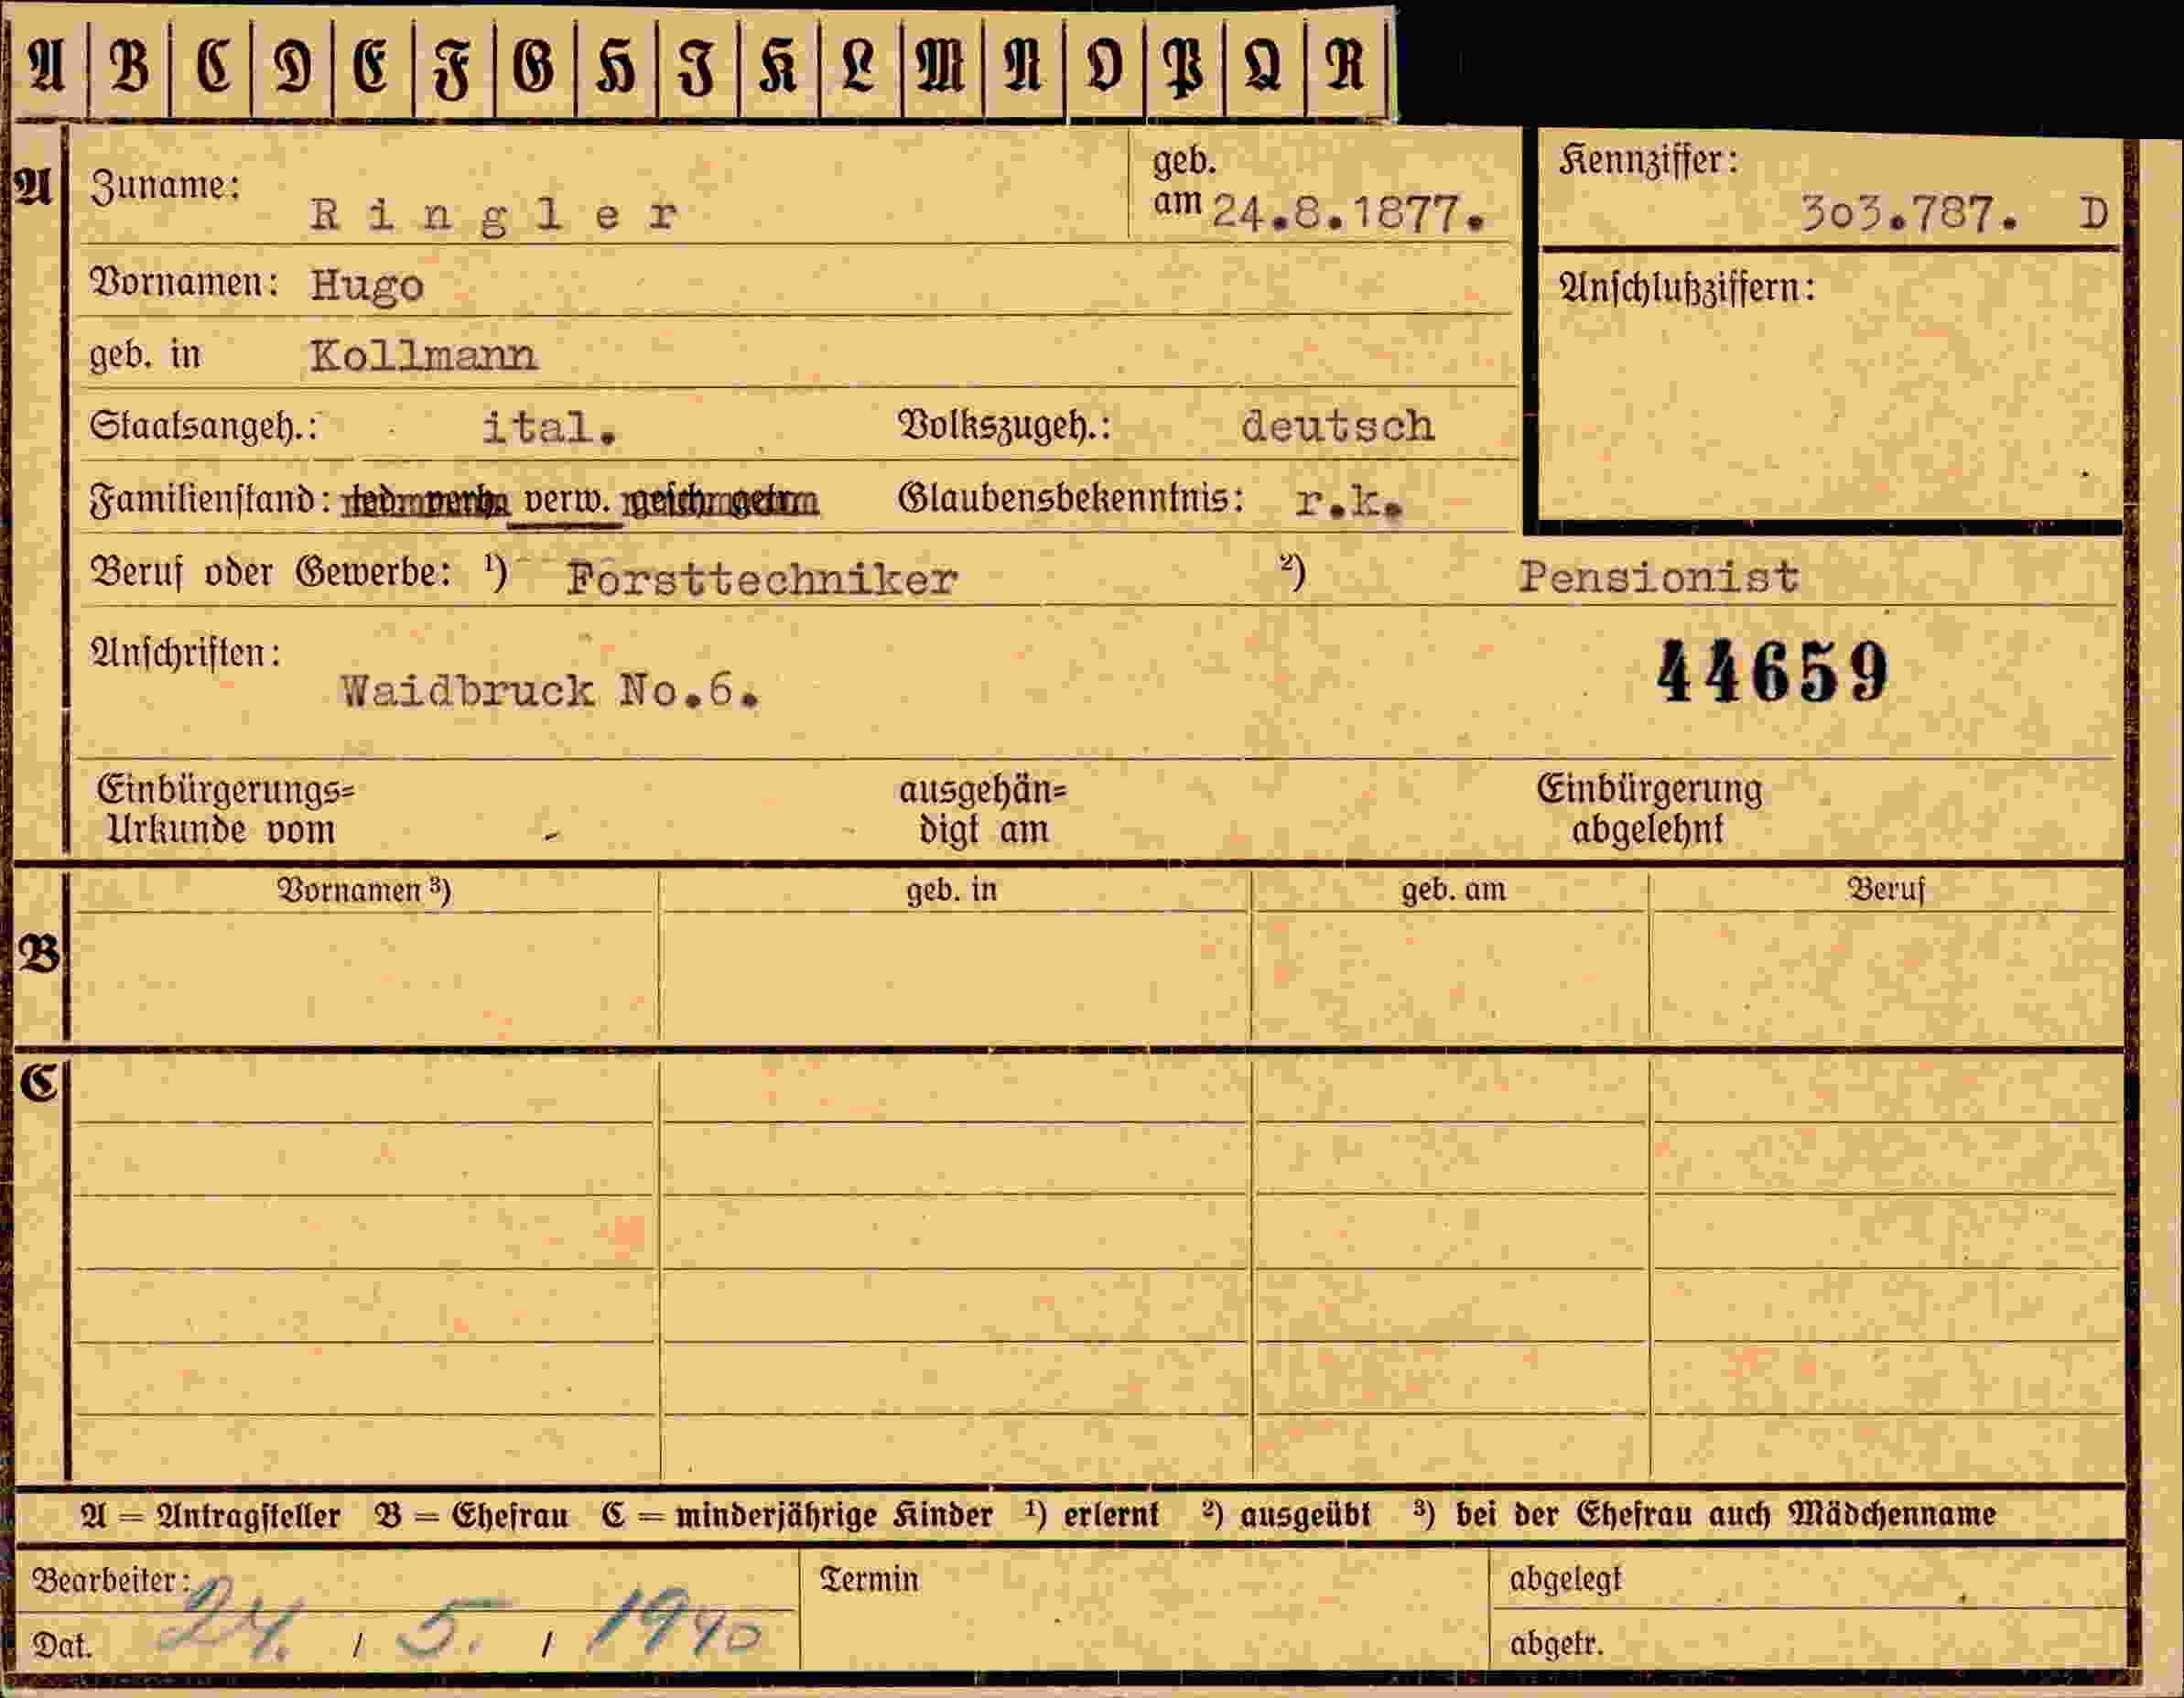 A B C D E F G H I K L M N O P Q R
A Zuname: Ringler geb. am 24.8.1877. Kennziffer: 303.787. D
Vornamen: Hugo Anschlußziffern:
geb. in Kollmann
Staatsangeh.: ital. Volkszugeh.: deutsch
Familienstand: verw. Glaubensbekenntnis: r.k.
Beruf oder Gewerbe: ¹) Forsttechniker ²) Pensionist
Anschriften: 44659
Waidbruck No.6.
Einbürgerungs= ausgehän= Einbürgerung
Urkunde vom - digt am abgelehnt
Vornamen ³) geb. in geb. am Beruf
B
C
A = Antragsteller B = Ehefrau C = minderjährige Kinder ¹) erlernt ²) ausgeübt ³) bei der Ehefrau auch Mädchenname
Bearbeiter: Termin abgelegt
Dat. 24. / 5. / 1940 abgetr.